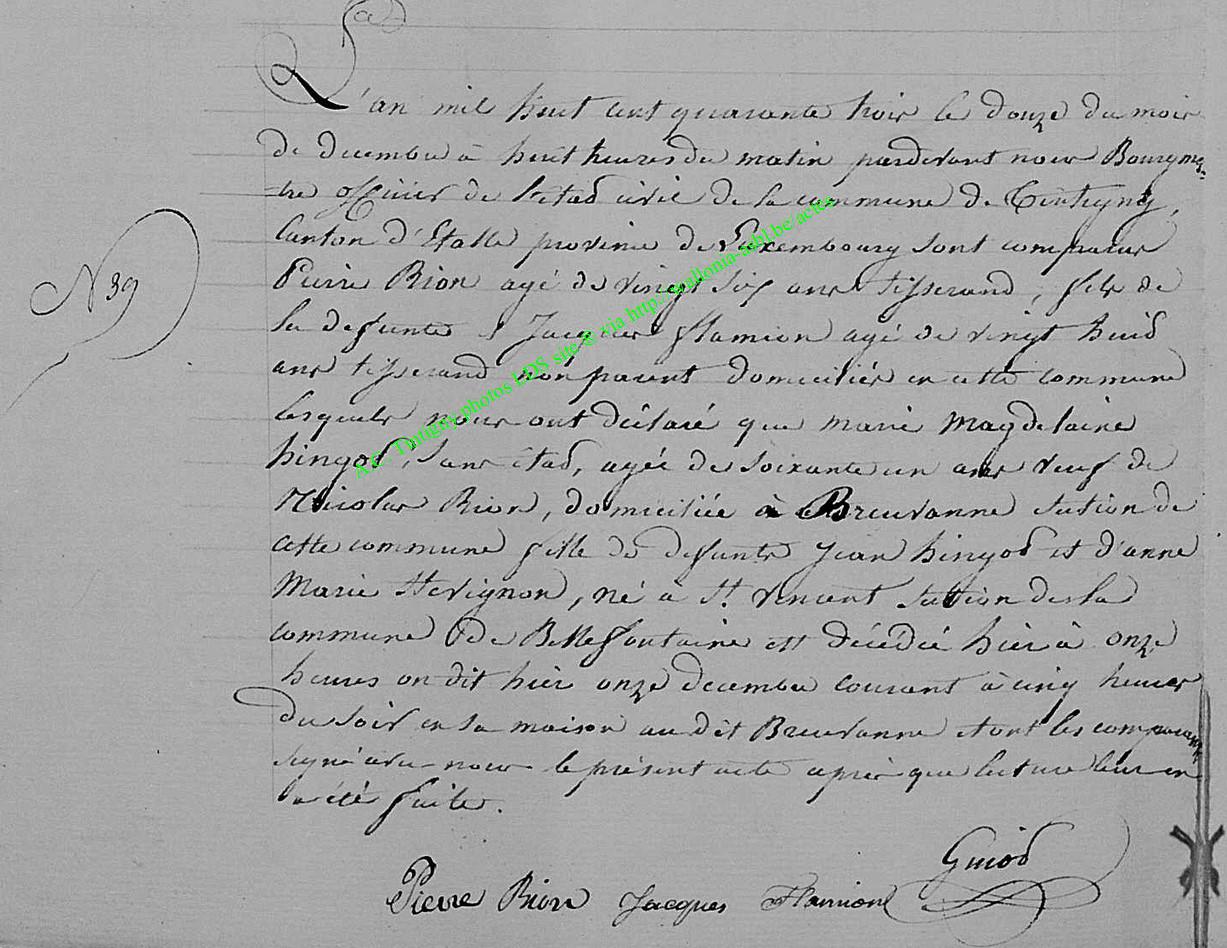 L'an mil huit cent quarante trois le douze du mois
de decembre à huit heures du matin pardevant nous Bourgmes-
tre officier de l'etat civil de la commune de Tintigny,
Canton d'Etalle province de Luxembourg sont comparus
N 39
Pierre Rion agé de vingt six ans tisserand, fils de
la defunte & Jacques flamion agé de vingt huit
ans tisserand non parent domiciliés en cette commune
lesquels nous ont déclaré que marie Magdelaine
hingot, sans état, agée de soixante un ans veuf de
Nicolas Rion, domiciliée à Breuvanne section de
cette commune fille de defunts Jean hingot et d'anne
Marie Hevignon, né à St. Vincent section de la
commune de Bellefontaine est décédée hier à onze
heures on dit hier onze decembre courant à cinq heures
du soir en sa maison au dit Breuvanne et ont les comparants
signé avec nous le présent acte après que lecture leur en
a été faite.
Guiot
Pierre Rion Jacques Flamion
A.C. Tintigny photos LDS site & via http://wallonia-asbl.be/actes